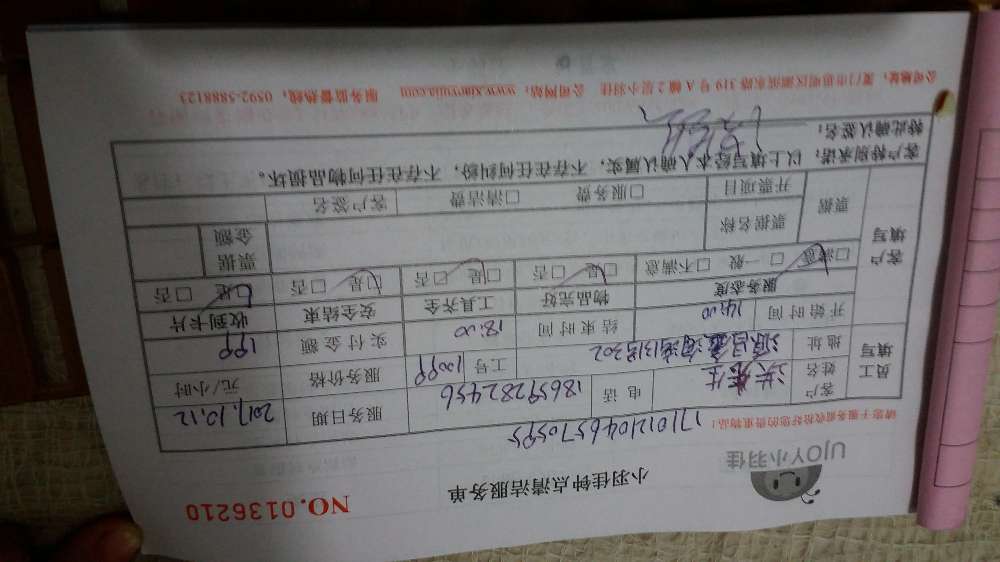 UJOY小羽佳
小羽佳钟点清洁服务单
NO.0136210
请您于服务前收拾好您的贵重物品!
员工填写
客户姓名
电话 18659282456
服务日期 2017.10.12
地址
工号
服务价格 元/小时
开始时间 14:00
结束时间 18:00
实付金额 199
客户填写
服务态度 物品完好 工具齐全 安全结束 收到卡片
□满意 □一般 □不满意 □是 □否 □是 □否 □是 □否 □是 □否
票据
票据名称
票据金额
开票项目 □服务费 □清洁费 客户签名
客户特别承诺:以上填写经本人确认属实,不存在任何纠纷,不存在任何物品损坏。
特此确认签名:
公司地址:厦门市思明区湖滨东路319号A幢2层小羽佳 公司网站:www.xiaoyujia.com 服务监督热线:0592-5888123